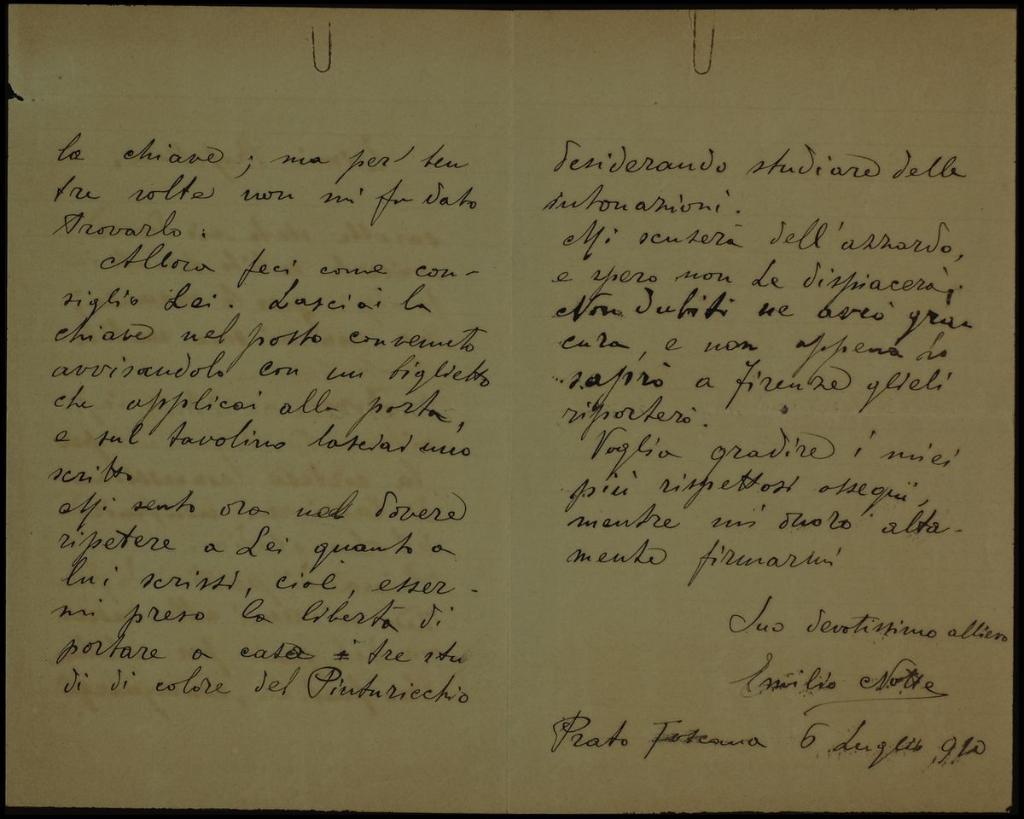 la chiave; ma per ben
tre volte non mi fu dato
trovarlo.
Allora feci come con-
siglio Lei. Lasciai la
chiave nel posto convenuto
avvisandolo con un biglietto
che applicai alla porta,
e sul tavolino lasciai uno
scritto
Mi sento ora nel dovere
ripetere a Lei quanto a
lui scrissi, cioè, esser-
mi preso la libertà di
portare a casa i tre stu
di di colore del Pinturicchio
desiderando studiare delle
intonazioni.
Mi scuserà dell'azzardo,
e spero non Le dispiacerà;
Non dubiti ne avrò gran
cura, e non appena Lo
saprò a Firenze glieli
riporterò.
Voglia gradire i miei
più rispettosi ossequi,
mentre mi onoro alta-
mente firmarmi
Suo devotissimo allievo
Emilio Notte
Prato Toscana 6 Luglio 910